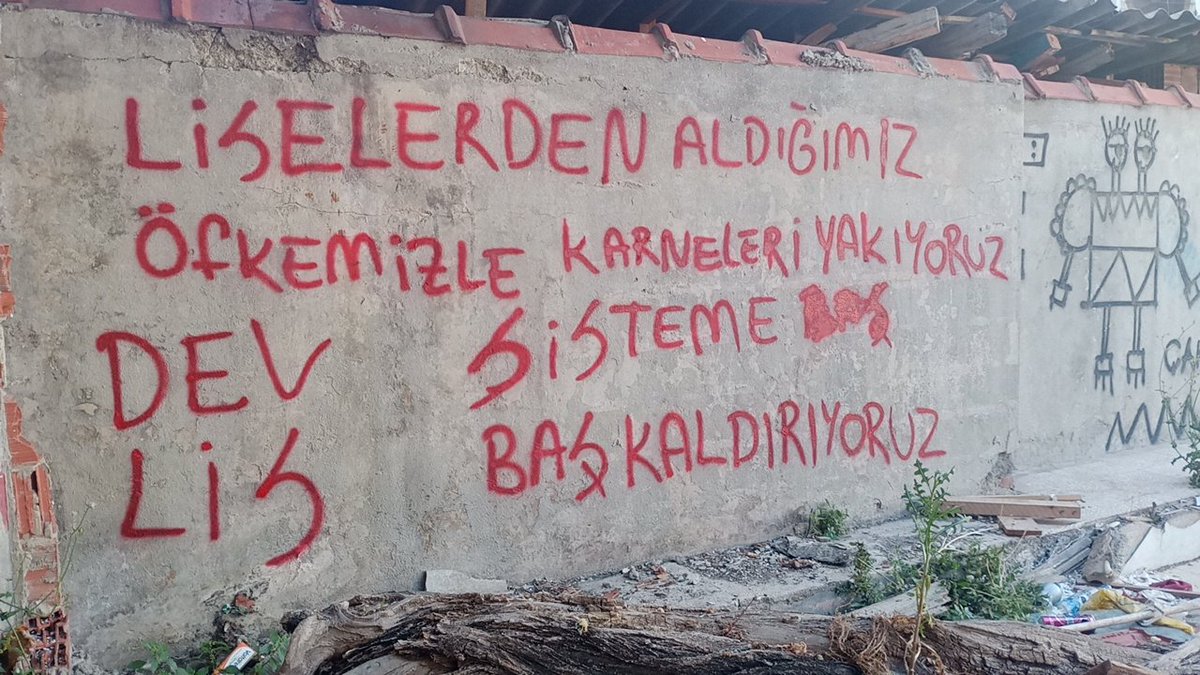 LİSELERDEN ALDIĞIMIZ
ÖFKEMİZLE KARNELERİ YAKIYORUZ
DEV SİSTEME
LİS BAŞKALDIRIYORUZ